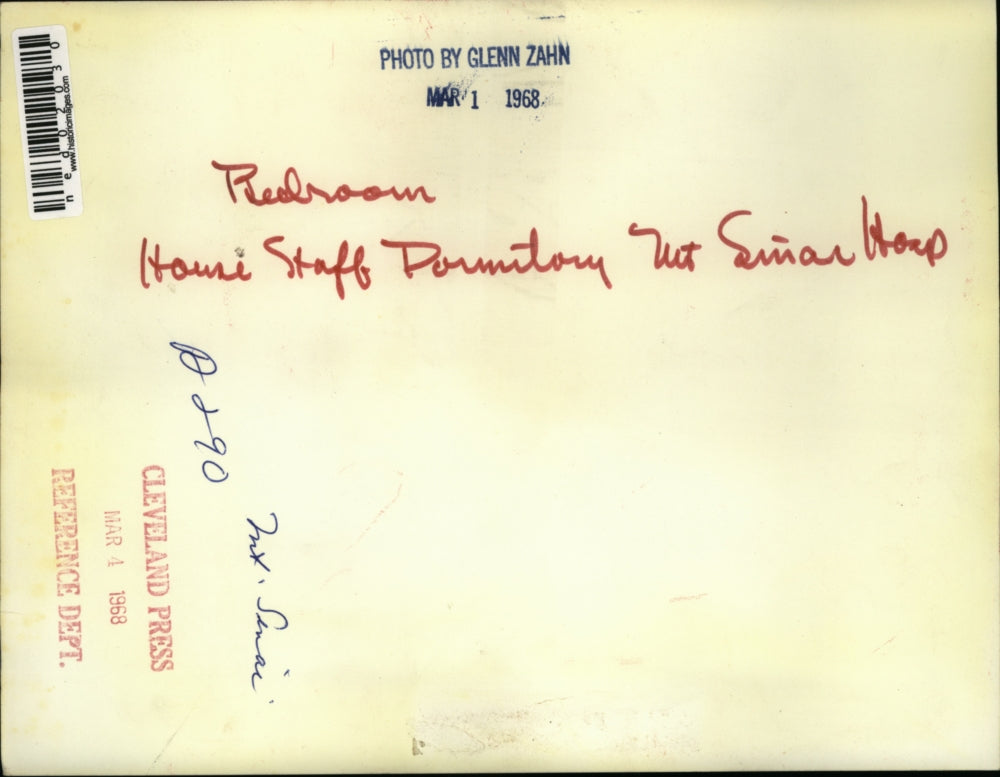 PHOTO BY GLENN ZAHN
MAR 1 1968
Bedroom
House Staff Dormitory Mt Sinai Hosp
D 290
Mt. Sinai.
CLEVELAND PRESS
MAR 4 1968
REFERENCE DEPT.
ned020030
www.historicimages.com